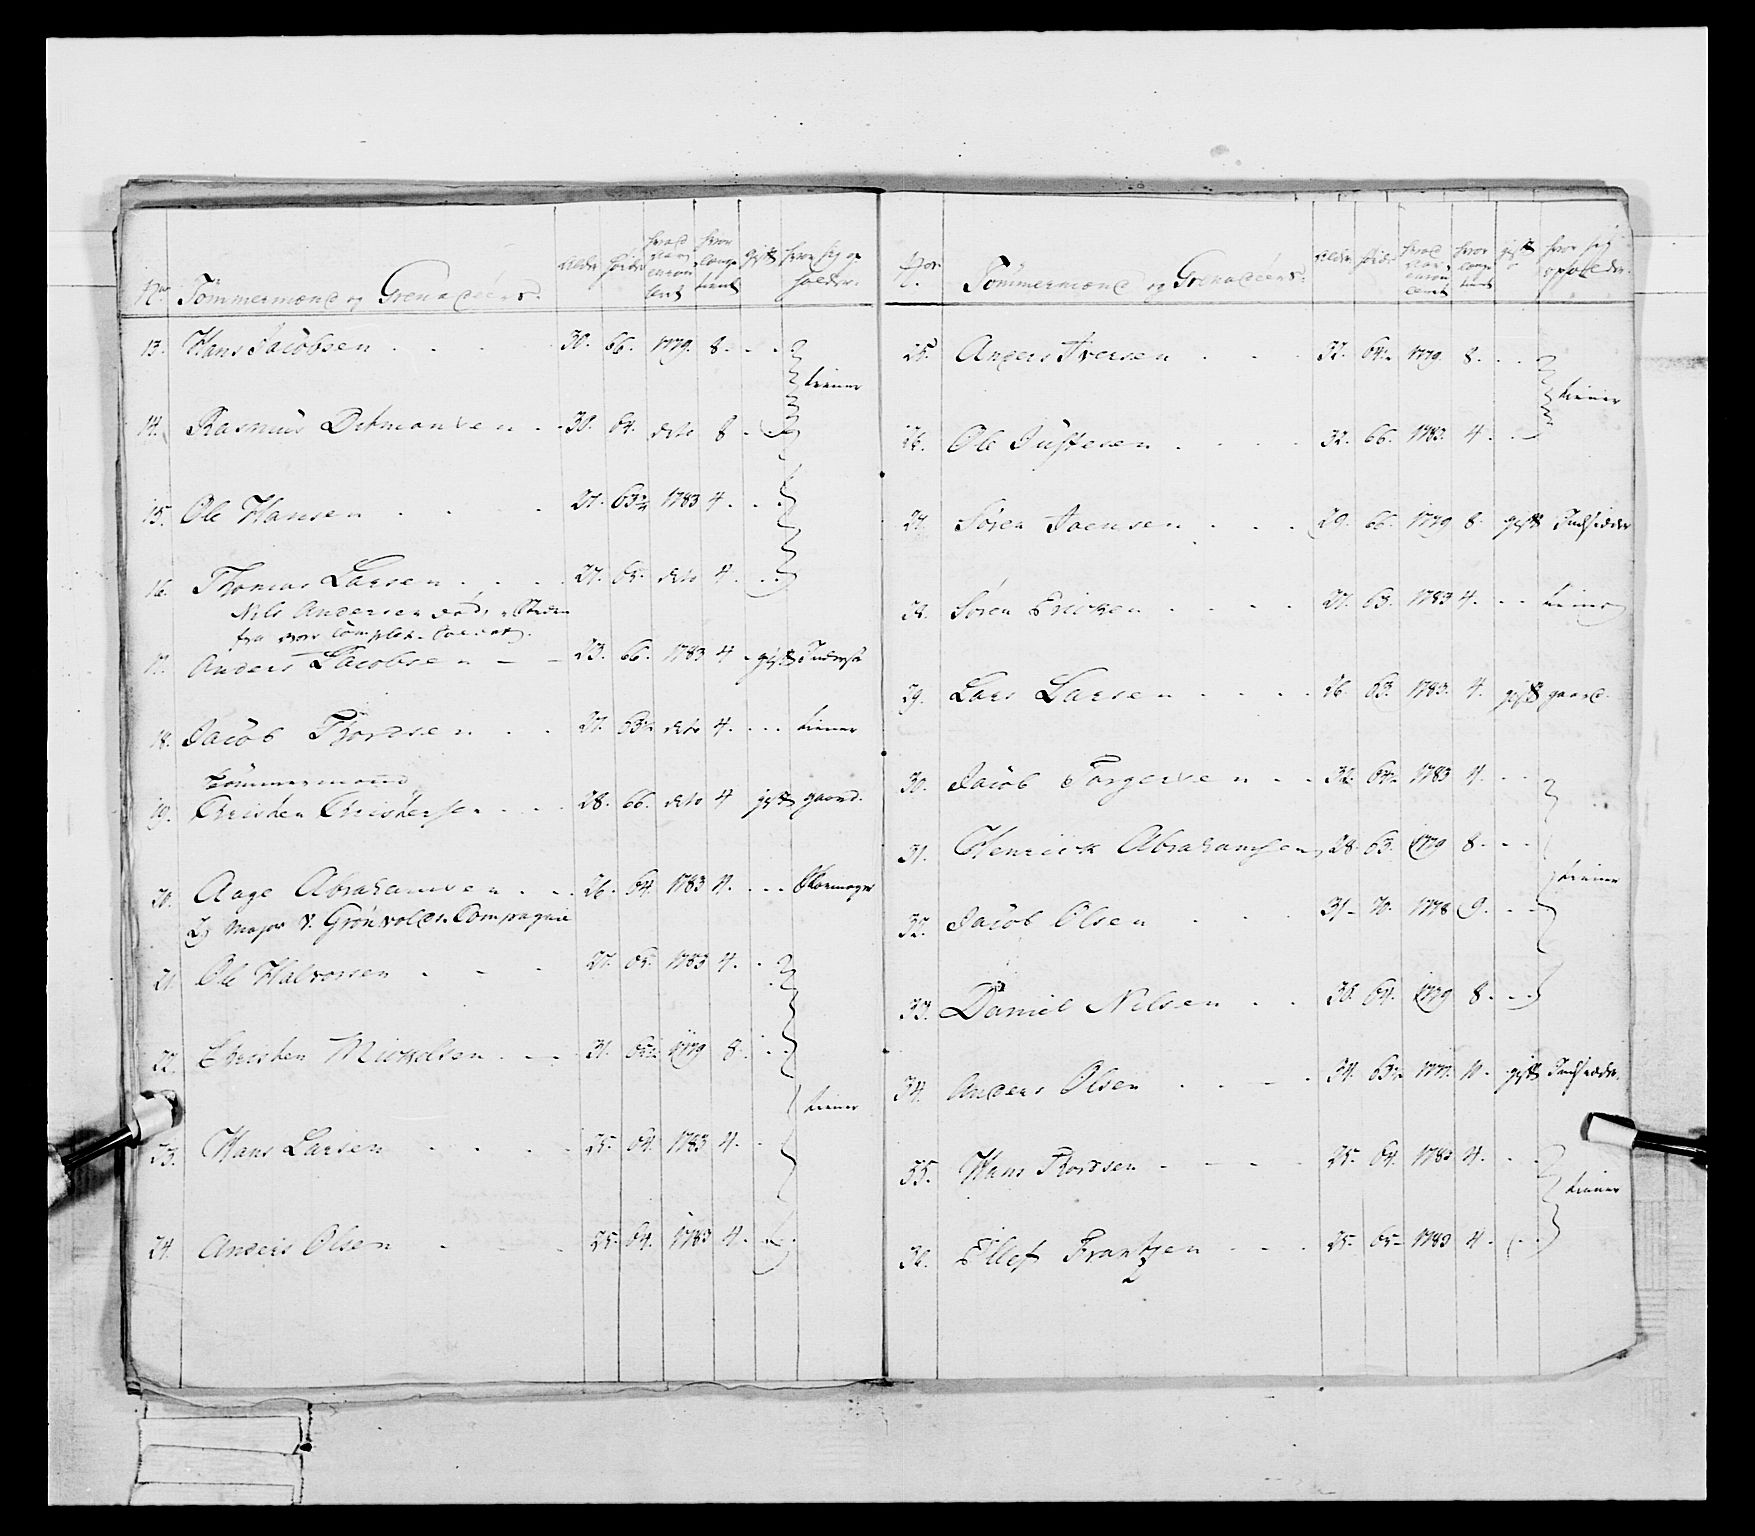 No. Tömmermænd og Grenadeers. Alder høide hvad Aar længe tient gift hvor sig op holder.
13. Hans Jacobsen 30. 66. 1779. 8.
tiener
14. Rasmus Ditmansen 30. 64. dito 8
15. Ole Hansen 27. 63½ 1783 4.
16. Thomas Larsen 27. 65. dito 4.
Nils Andersen død,
fra
17. Anders Jacobsen 23. 66. 1783 4 gift Inderst
18. Jacob Thordsen 27. 63½ dito 4. tiener
Tömmermand
19. Christen Christensen 28. 66. dito 4 gift gaard.
20. Aage Abrahamsen 26. 64. 1783 4. Skomager
Major V. Grönvolds Compagnie
21. Ole Halvorsen 27. 65. 1783 4.
22. Christen Mickelsen 31. 1779 8.
tiener
23. Hans Larsen 25. 64. 1783 4.
24. Anders Olsen 25. 64. 1783 4.
No. Tömmermænd og Grenadeers. Alder høide hvad Aar hvor længe tient gift hvor sig opholder.
25. Anders Iversen 32. 64½ 1779 8.
tiener
26. Ole Justesen 32. 66. 1783. 4.
27. Sören Jaensen 29. 66. 1779 8. gift Indsidder
28. Sören Ericksen 27. 63. 1783 4. tiener
29. Lars Larsen 26. 63. 1783. 4. gift gaard.
30. Jacob Torgersen 32. 64½ 1783 4.
31. Henrick Abrahamsen 28. 63. 1779 8.
tiener
32. Jacob Olsen 31. 70. 1778 9.
33. Daniel Nilsen 30. 64. 1779 8.
34. Anders Olsen 34. 63½ 1777. 10. gift Indsidder.
35. Hans Thordsen 25. 64. 1783 4.
tiener
36. Ellef Frantzen 25. 65. 1783 4.